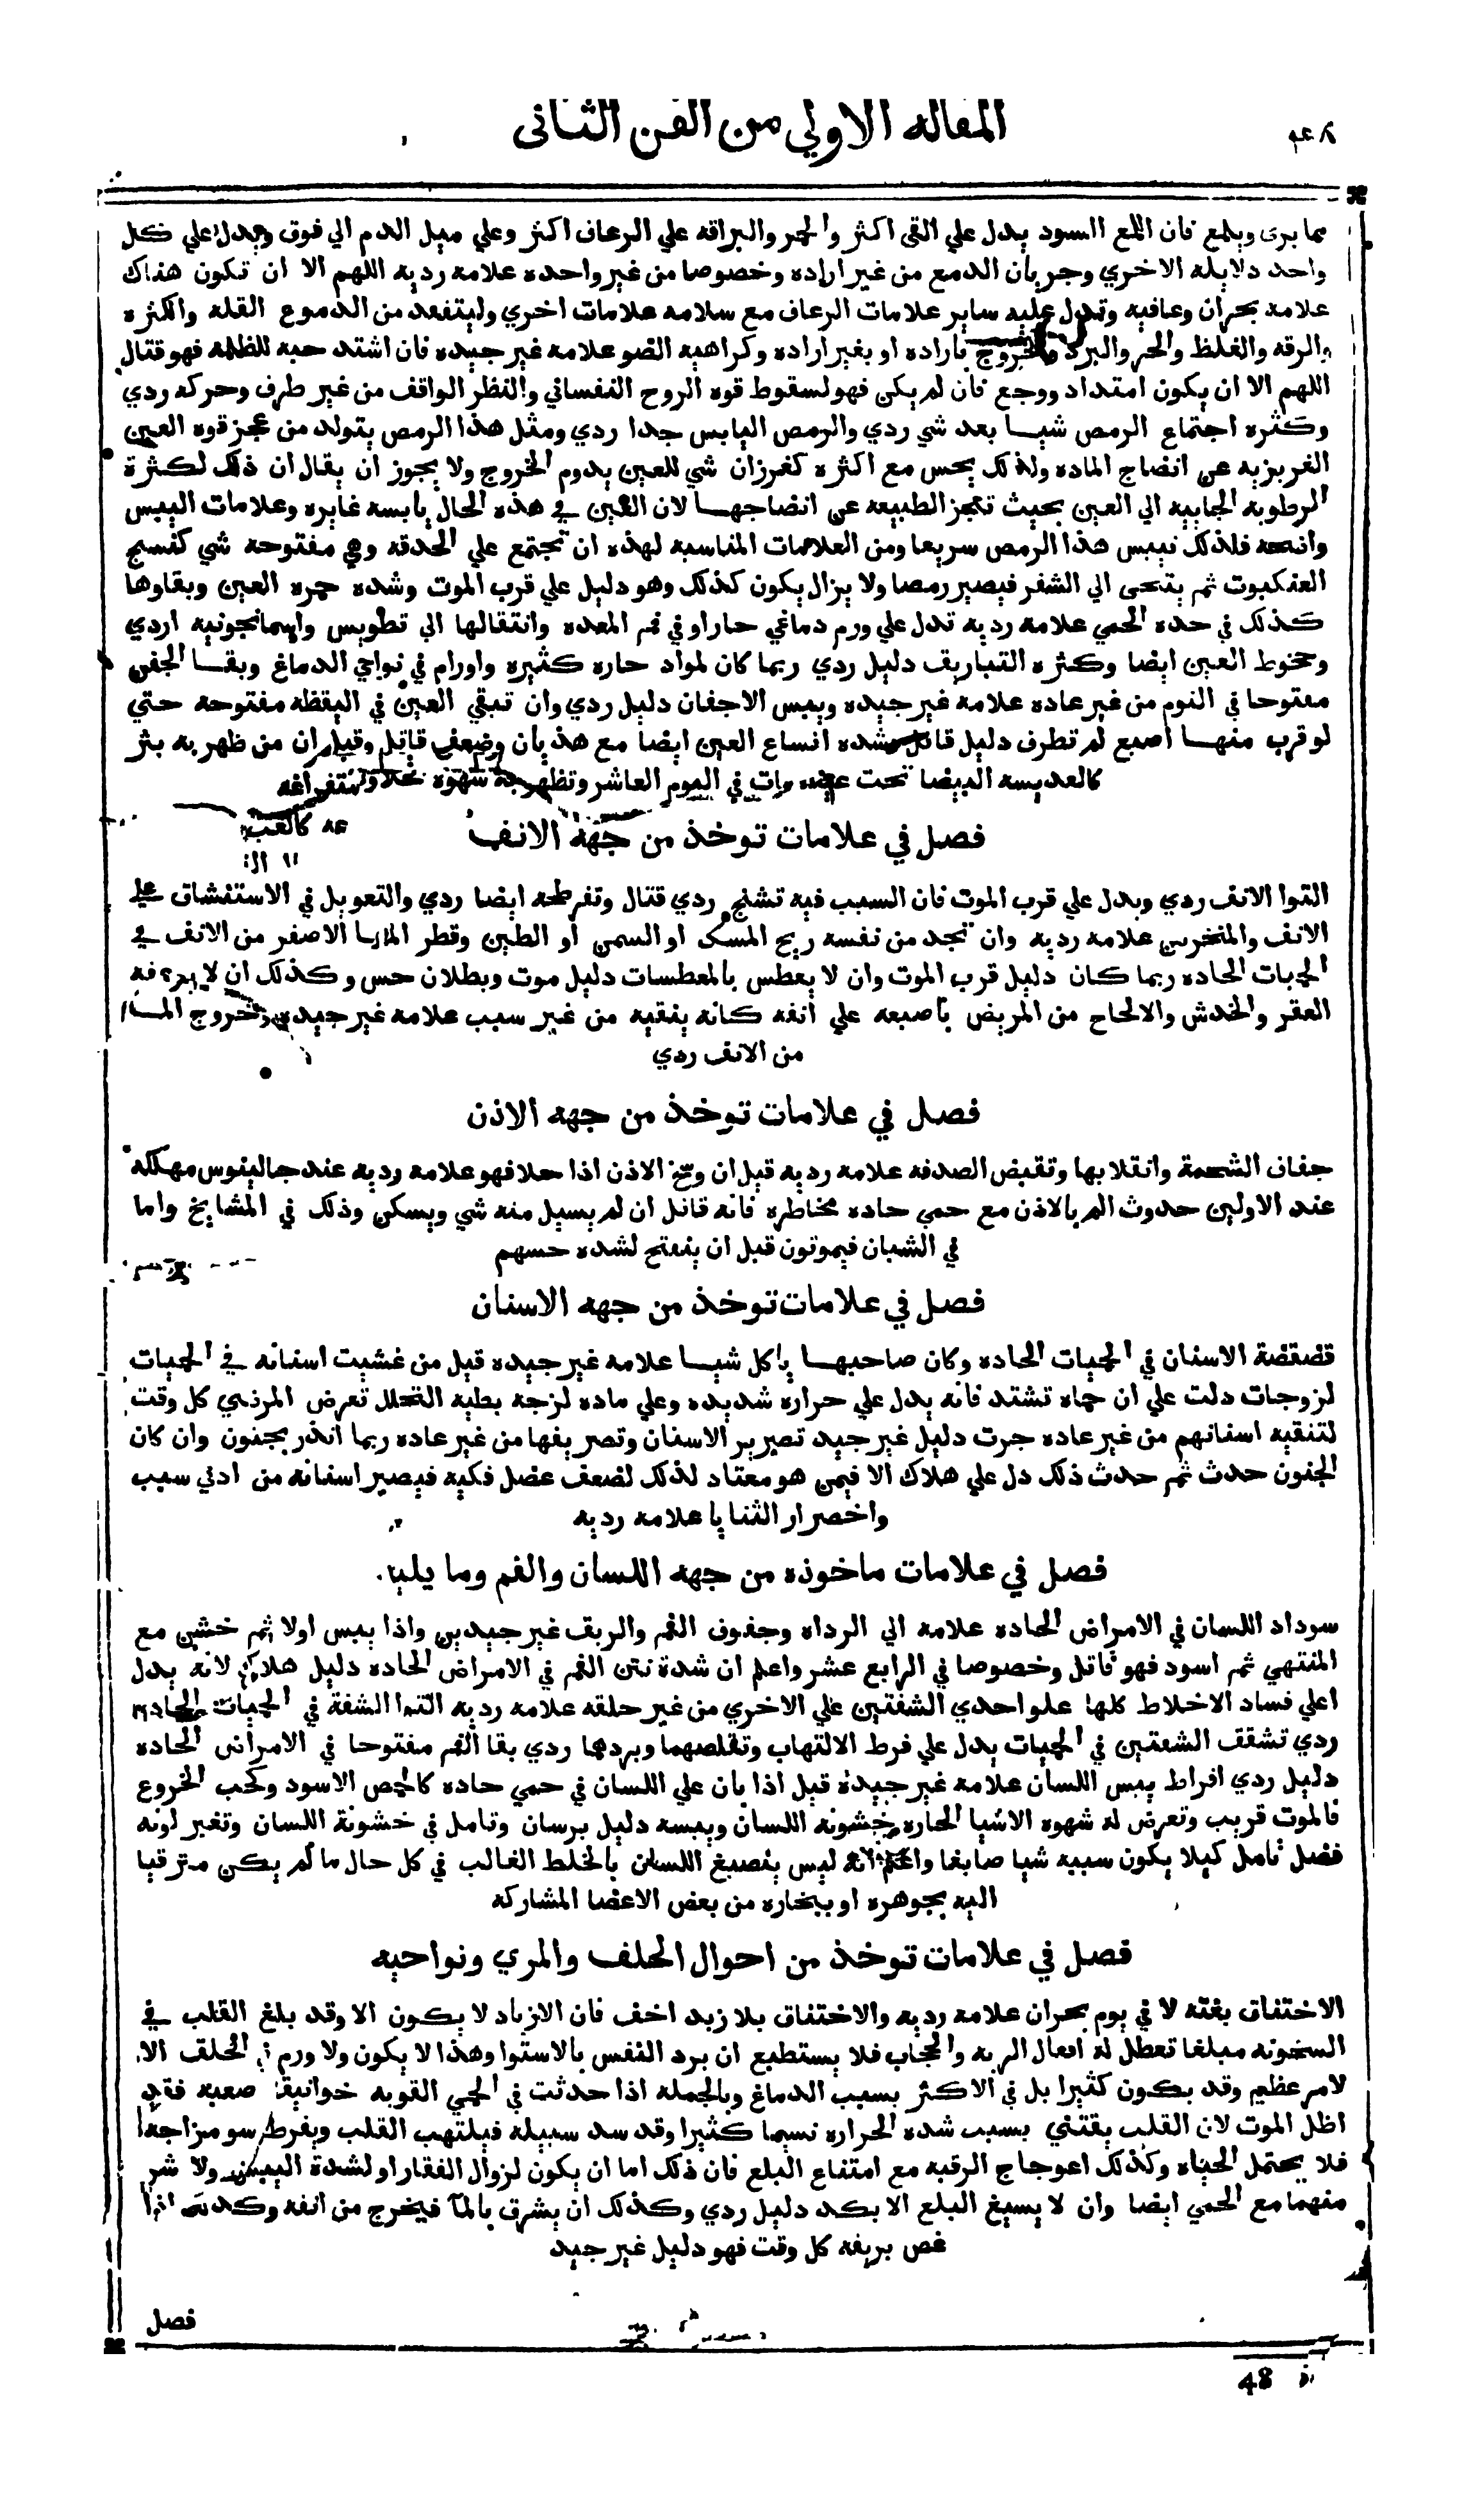 المقاله الاولي من الفن الثاني
مما يري ويلمع فان اللمع السود يدل علي القي اكثر والحمر والبراقه علي الرعاف اكثر وعلي ميل الدم الي فوق ويدل علي كل
واحد دلايله الاخري وجريان الدمع من غير اراده وخصوصا من غير واحده علامه رديه اللهم الا ان تكون هناك
علامه بحران وعافيه وتدل عليه ساير علامات الرعاف مع سلامه علامات اخري وليتفقد من الدموع القله والكثره
والرقه والغلظ والحر والبرد والخروج باراده او بغير اراده وكراهيه الضو علامه غير جيده فان اشتد حبه للظلمه فهو قتال
اللهم الا ان يكون امتداد ووجع فان لم يكن فهو لسقوط قوه الروح النفساني والنظر الواقف من غير طرف وحركه ردي
وكثره اجتماع الرمص شيا بعد شي ردي والرمص اليابس جدا ردي ومثل هذا الرمص يتولد من عجز قوه العين
الغريزيه عن انضاج الماده ولذلك يحس مع اكثره كغرزان شي للعين يدوم الخروج ولا يجوز ان يقال ان ذلك لكثرة
الرطوبه الجايه الي العين بحيث تعجز الطبيعه عن انضاجها لان العين في هذه الحال يابسه غايره وعلامات اليبس
واضحه فلذلك ييبس هذا الرمص سريعا ومن العلامات المناسبه لهذه ان تجتمع علي الحدقه وهي مفتوحه شي كنسج
العنكبوت ثم يتنحي الي الشفر فيصير رمصا ولا يزال يكون كذلك وهو دليل علي قرب الموت وشده حمره العين وبقاوها
كذلك في حده الحمي علامه رديه تدل علي ورم دماغي حار او في فم المعده وانتقالها الي تطويس واسمانجونيه اردي
وجحوظ العين ايضا وكثره التباريق دليل ردي ربما كان لمواد حاره كثيره واورام في نواحي الدماغ وبقا الجفن
مفتوحا في النوم من غير عاده علامه غير جيده ويبس الاجفان دليل ردي وان تبقي العين في اليقظه مفتوحه حتي
لو قرب منها اصبع لم تطرف دليل قاتل وشده اتساع العين ايضا مع هذيان وضعف قاتل وقيل ان من ظهر به بثر
كالعديسه البيضا تحت عينه مات في اليوم العاشر وتظهر به شهوه حلاو
فصل في علامات توخذ من جهه الانف
التوا الانف ردي ويدل علي قرب الموت فان السبب فيه تشنج ردي قتال وتفرطحه ايضا ردي والتعويل في الاستنشاق علي
الانف والمنخرين علامه رديه وان تجد من نفسه ريح المسك او السمن او الطين وقطر الما الاصفر من الانف في
الحميات الحاده ربما كان دليل قرب الموت وان لا يعطس بالمعطسات دليل موت وبطلان حس وكذلك ان لا
العقر والخدش والالحاح من المريض باصبعه علي انفه كانه ينقيه من غير سبب علامه غير جيده وخروج الما
من الانف ردي
فصل في علامات توخذ من جهه الاذن
جفاف الشحمة وانقلابها وتقبض الصدفه علامه رديه قيل ان وسخ الاذن اذا حلا فهو علامه رديه عند جالينوس مهلكه
عند الاولين حدوث الم بالاذن مع حمي حاده مخاطره فانه قاتل ان لم يسيل منه شي ويسكن وذلك في المشايخ واما
في الشبان فيموتون قبل ان ينفتح لشده حسهم
فصل في علامات توخذ من جهه الاسنان
قضقضة الاسنان في الحميات الحاده وكان صاحبها ياكل شيا علامه غير جيده قيل من غشيت اسنانه في الحميات
لزوجات دلت علي ان حماه تشتد فانه يدل علي حراره شديده وعلي ماده لزجه بطيه التحلل تعرض المرضي كل وقت
لتنقيه اسنانهم من غير عاده جرت دليل غير جيد تصرير الاسنان وتصريفها من غير عاده ربما انذر بجنون وان كان
الجنون حدث ثم حدث ذلك دل علي هلاك الا فيمن هو معتاد لذلك لضعف عضل فكيه فيصير اسنانه من ادني سبب
واخضرار الثنايا علامه رديه
فصل في علامات ماخوذه من جهه اللسان والفم وما يليه
سوداد اللسان في الامراض الحاده علامه الي الرداه وجفوف الفم والريق غير جيدين واذا يبس اولا ثم خشن مع
المنتهي ثم اسود فهو قاتل وخصوصا في الرابع عشر واعلم ان شدة نتن الفم في الامراض الحاده دليل هلاك لانه يدل
اعلي فساد الاخلاط كلها علو احدي الشفتين علي الاخري من غير حلقه علامه رديه التوا الشفة في الحميات الحاده
ردي تشقق الشفتين في الحميات يدل علي فرط الالتهاب وتقلصهما وبردهما ردي بقا الفم مفتوحا في الامراض الحاده
دليل ردي افراط يبس اللسان علامه غير جيدة قيل اذا بان علي اللسان في حمي حاده كالحمص الاسود وكحب الخروع
فالموت قريب وتعرض له شهوه الاشيا الحاره وخشونه اللسان ويبسه دليل برسان وتامل في خشونة اللسان وتغير لونه
فضل تامل كيلا يكون سببه شيا صابغا واعلم انه ليس ينصبغ اللسان بالخلط الغالب في كل حال ما لم يكن مترقيا
اليه بجوهره او ببخاره من بعض الاعضا المشاركه
فصل في علامات توخذ من احوال الحلف والمري ونواحيه
الاختناق بغته لا في يوم بحران علامه رديه والاختناق بلا زبد اخف فان الازباد لا يكون الا وقد بلغ القلب في
السخونه مبلغا تعطل له افعال الريه والحجاب فلا يستطيع ان يرد النفس بالاستوا وهذا لا يكون ولا ورم في الحلق الا
لامر عظيم وقد يكون كثيرا بل في الاكثر بسبب الدماغ وبالجمله اذا حدثت في الحمي القويه خوانيق صعبه فقد
اظل الموت لان القلب يقتضي بسبب شده الحراره نسيما كثيرا وقد سد سبيله فيلتهب القلب ويفرط سو مزاجه
فلا يحتمل الحياه وكذلك اعوجاج الرقبه مع امتناع البلع فان ذلك اما ان يكون لزوال الفقار او لشدة اليبس ولا شر
منهما مع الحمي ايضا وان لا يسيغ البلع الا بكد دليل ردي وكذلك ان يشرق بالما فيخرج من انفه وكذلك اذا
غص بريقه كل وقت فهو دليل غير جيد
فصل
48